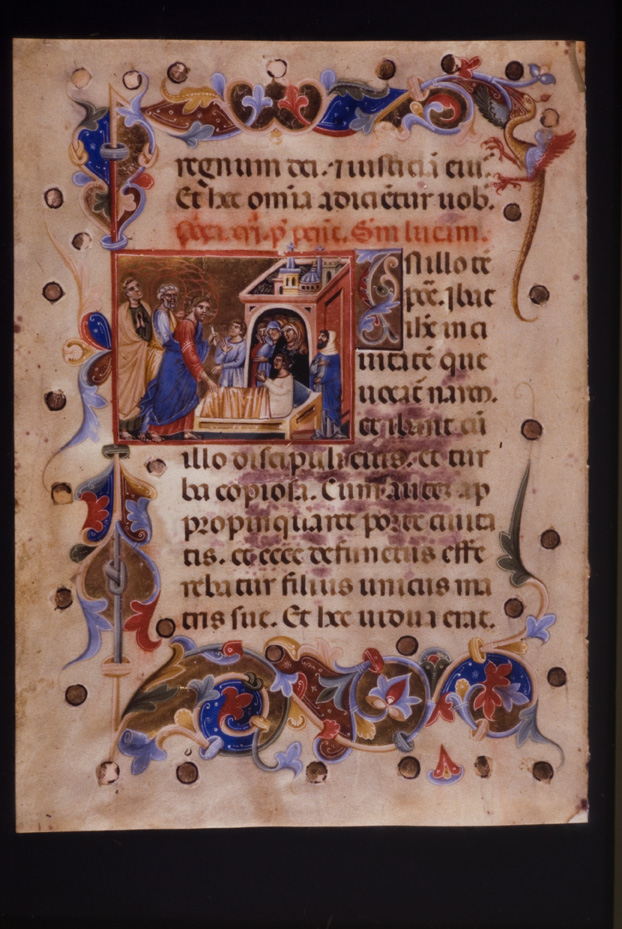 regnum dei. ⁊ iusticiã eiuˢ.
Et hec omĩa adicientur uob̃.
Sm lucam.
In illo tẽ
põẽ. Ibat
ihc in ci
uitatẽ que
uocat̃ naym.
et ibant cũ
illo discipuli eius. et tur
ba copiosa. Cum autez ap
propinquaret porte ciuita
tis. et ecce defunctus effe
rebatur filius unicus ma
tris sue. Et hec uidua erat.